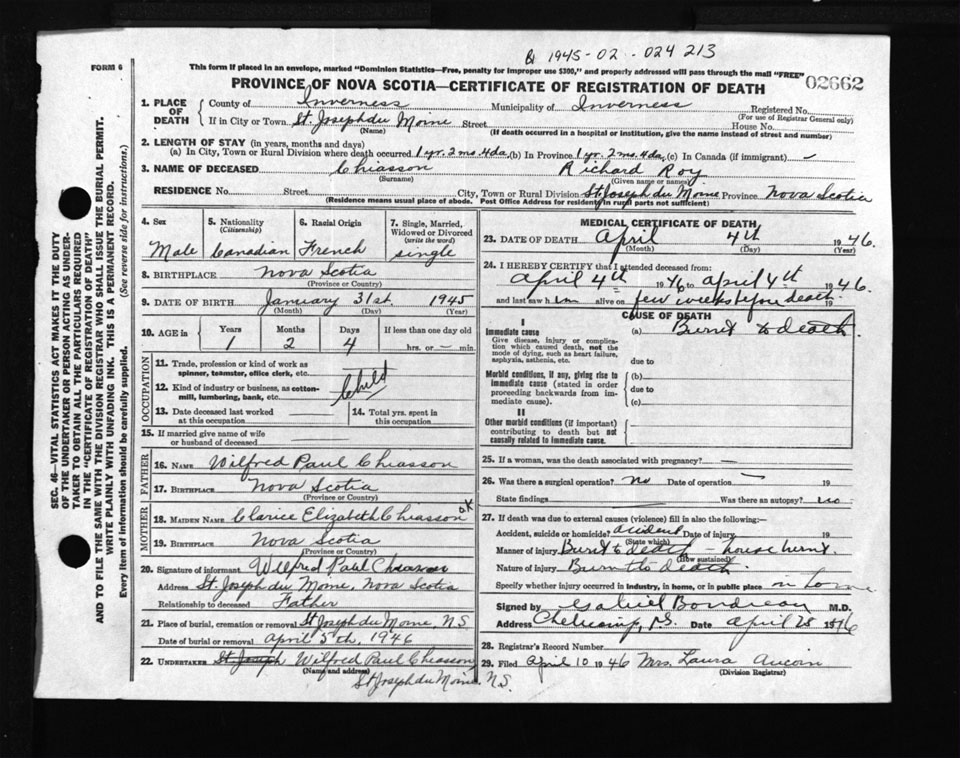 & 1945-02-024213
FORM 6
This form if placed in an envelope, marked "Dominion Statistics—Free, penalty for improper use $300," and properly addressed will pass through the mail "FREE"
02662
PROVINCE OF NOVA SCOTIA—CERTIFICATE OF REGISTRATION OF DEATH
1. PLACE OF DEATH
County of Inverness Municipality of Inverness Registered No.
(For use of Registrar General only)
If in City or Town St. Joseph du Moine Street House No.
(Name) (If death occurred in a hospital or institution, give the name instead of street and number)
2. LENGTH OF STAY (in years, months and days)
(a) In City, Town or Rural Division where death occurred 1 yr. 2 ms. 4 da. (b) In Province 1 yr. 2 ms. 4 da. (c) In Canada (if immigrant) —
3. NAME OF DECEASED Chiasson Richard Roy
(Surname) (Given name or names)
RESIDENCE No. Street City, Town or Rural Division St. Joseph du Moine Province Nova Scotia
(Residence means usual place of abode. Post Office Address for residents in rural parts not sufficient)
4. Sex 5. Nationality 6. Racial Origin 7. Single, Married,
(Citizenship) Widowed or Divorced
(write the word)
Male Canadian French single
8. BIRTHPLACE Nova Scotia
(Province or Country)
9. DATE OF BIRTH January 31st. 1945
(Month) (Day) (Year)
10. AGE in Years Months Days If less than one day old
1 2 4 hrs. or — min.
OCCUPATION
11. Trade, profession or kind of work as
spinner, teamster, office clerk, etc.
12. Kind of industry or business, as cotton-
mill, lumbering, bank, etc.
Child
13. Date deceased last worked
at this occupation
14. Total yrs. spent in
this occupation
15. If married give name of wife
or husband of deceased
FATHER
16. NAME Wilfred Paul Chiasson
17. BIRTHPLACE Nova Scotia
(Province or Country)
MOTHER
18. MAIDEN NAME Clarice Elizabeth Chiasson OK
19. BIRTHPLACE Nova Scotia
(Province or Country)
20. Signature of informant Wilfred Paul Chiasson
Address St. Joseph du Moine, Nova Scotia
Relationship to deceased Father
21. Place of burial, cremation or removal St. Joseph du Moine, N.S.
Date of burial or removal April 5th, 1946
22. UNDERTAKER St. Joseph Wilfred Paul Chiasson
(Name and address)
St. Joseph du Moine N.S.
MEDICAL CERTIFICATE OF DEATH
23. DATE OF DEATH April 4th 1946.
(Month) (Day) (Year)
24. I HEREBY CERTIFY that I attended deceased from:
April 4th 1946 to April 4th 1946.
and last saw him alive on few weeks before death 19
CAUSE OF DEATH
I
Immediate cause (a) Burnt to death
Give disease, injury or complica-
tion which caused death, not the
mode of dying, such as heart failure,
asphyxia, asthenia, etc.
due to
Morbid conditions, if any, giving rise to
immediate cause (stated in order
proceeding backwards from im-
mediate cause).
(b)
due to
(c)
II
Other morbid conditions (if important)
contributing to death but not
causally related to immediate cause.
25. If a woman, was the death associated with pregnancy? —
26. Was there a surgical operation? no Date of operation — 19
State findings — Was there an autopsy? no
27. If death was due to external causes (violence) fill in also the following:—
Accident, suicide or homicide? accident Date of injury 19
(State which)
Manner of injury Burnt to death — house burnt.
(How sustained)
Nature of injury Burnt to death.
Specify whether injury occurred in industry, in home, or in public place in home
Signed by Gabriel Boudreau M.D.
Address Cheticamp, N.S. Date April 28 1946
28. Registrar's Record Number
29. Filed April 10 1946 Mrs. Laura Aucoin
(Division Registrar)
SEC. 46—VITAL STATISTICS ACT MAKES IT THE DUTY
OF THE UNDERTAKER OR PERSON ACTING AS UNDER-
TAKER TO OBTAIN ALL THE PARTICULARS REQUIRED
IN THE "CERTIFICATE OF REGISTRATION OF DEATH"
AND TO FILE THE SAME WITH THE DIVISION REGISTRAR WHO SHALL ISSUE THE BURIAL PERMIT.
WRITE PLAINLY WITH UNFADING INK. THIS IS A PERMANENT RECORD.
Every item of information should be carefully supplied. (See reverse side for instructions.)